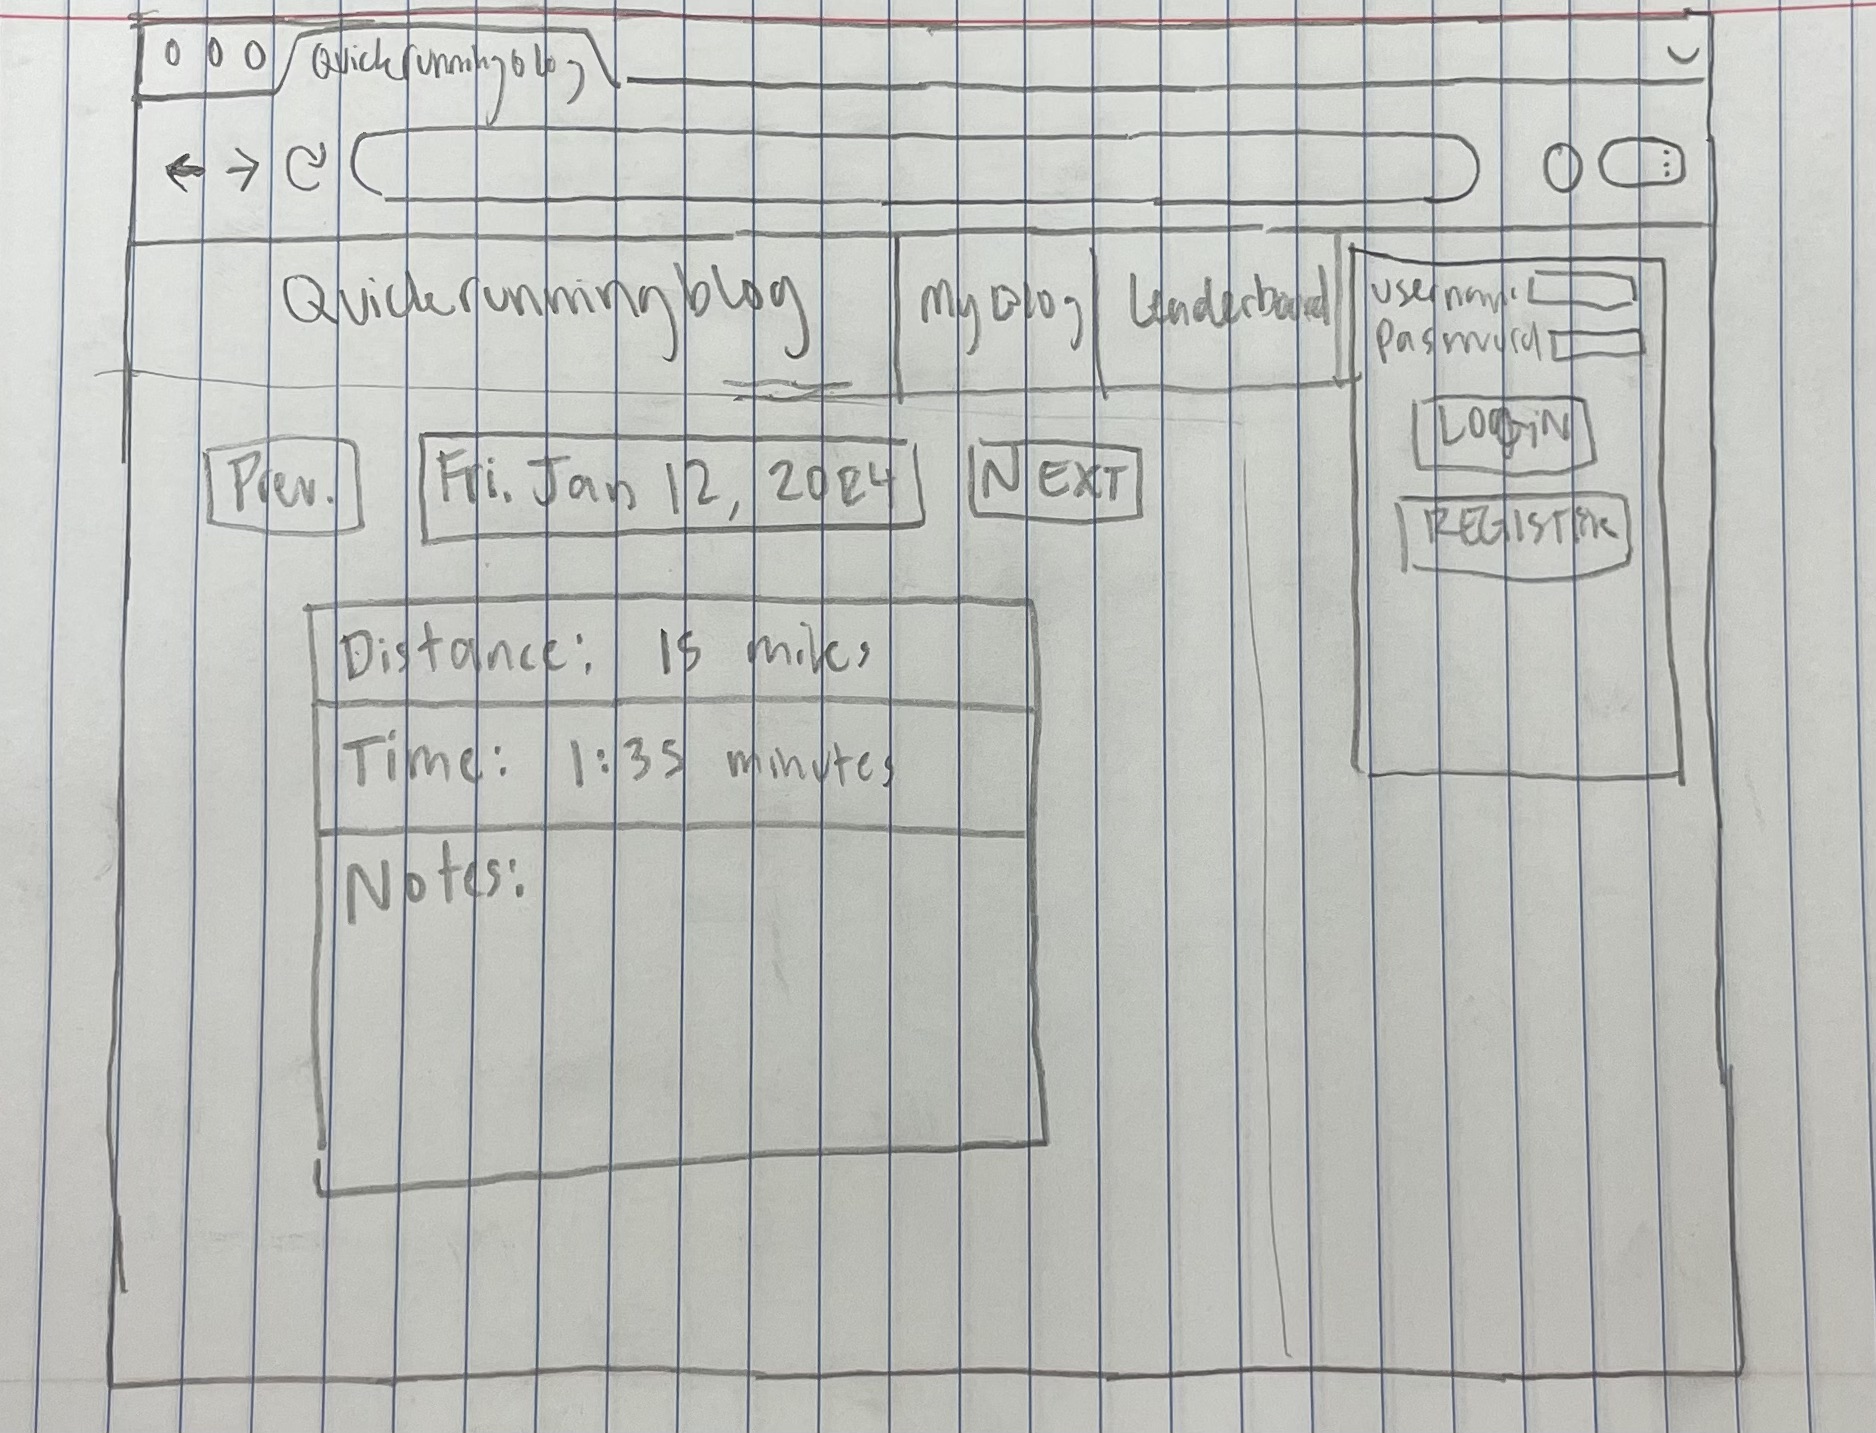 Quickrunningblog
Quickrunningblog
My Blog
Leaderboard
username:
Password
LOGIN
REGISTER
Prev.
Fri. Jan 12, 2024
NEXT
Distance: 15 miles
Time: 1:35 minutes
Notes: